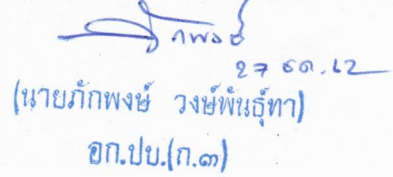 ภักพงษ์
27 ธค.62
(นายภักพงษ์ วงษ์พันธุ์ทา)
อก.ปบ.(ก.๓)